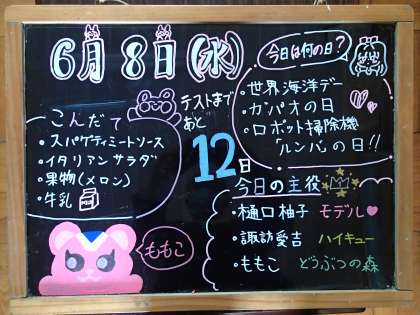 6月8日(水)
今日は何の日?
・世界海洋デー
・ガパオの日
・ロボット掃除機
「ルンバ」の日!!
テストまで
あと
12日
こんだて
・スパゲティミートソース
・イタリアンサラダ
・果物(メロン)
・牛乳
今日の主役
・樋口柚子 モデル
・諏訪愛吉 ハイキュー
・ももこ どうぶつの森
ももこ